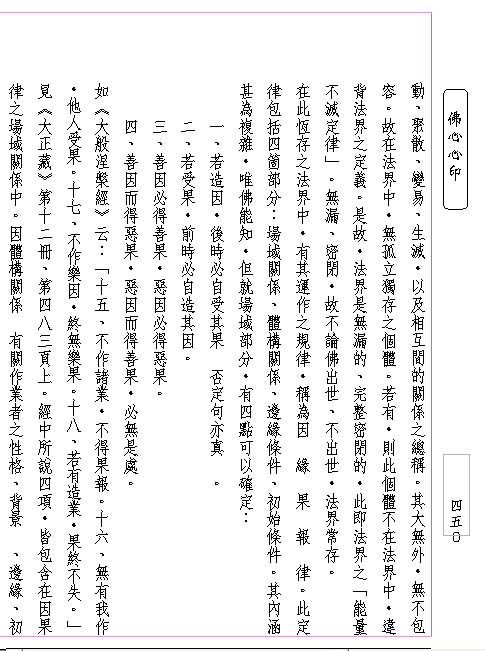 佛心心印
四五〇
動、聚散、變易、生滅，以及相互間的關係之總稱。其大無外，無不包
容。故在法界中，無孤立獨存之個體。若有，則此個體不在法界中，違
背法界之定義。是故，法界是無漏的、完整密閉的，此即法界之「能量
不滅定律」。無漏、密閉，故不論佛出世、不出世，法界常存。
在此恆存之法界中，有其運作之規律，稱為因　緣　果　報　律。此定
律包括四個部分：場域關係、體構關係、邊緣條件、初始條件。其內涵
甚為複雜，唯佛能知，但就場域部分，有四點可以確定：
一、若造因，後時必自受其果　否定句亦真　。
二、若受果，前時必自造其因。
三、善因必得善果，惡因必得惡果。
四、善因而得惡果，惡因而得善果，必無是處。
如《大般涅槃經》云：「十五、不作諸業，不得果報。十六、無有我作
，他人受果。十七、不作樂因，終無樂果。十八、若有造業，果終不失。」
見《大正藏》第十二冊、第四八三頁上。經中所說四項，皆包含在因果
律之場域關係中。因體構關係　有關作業者之性格、背景　、邊緣、初